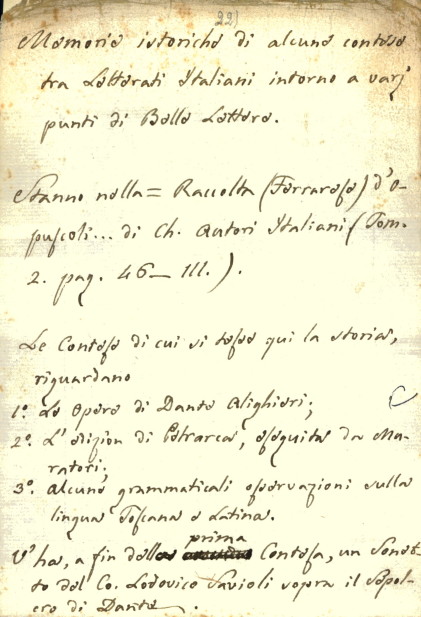 22)
Memorie istoriche di alcune contese
tra Letterati Italiani intorno a varj
punti di Belle Lettere.
Stanno nella = Raccolta (Ferrarese) d'O-
puscoli... di Ch. Autori Italiani (Tom.
2. pag. 46 — 111.).
Le Contese di cui si tesse qui la storia,
riguardano
1º. Le Opere di Dante Alighieri;
2º. L'edizion di Petrarca, eseguita da Mu-
ratori;
3º. alcune grammaticali osservazioni sulla
lingua Toscana e Latina.
prima
V'ha, a fin della Contesa, un Sonet-
to del Co. Lodovico Savioli sopra il Sepol-
cro di Dante.